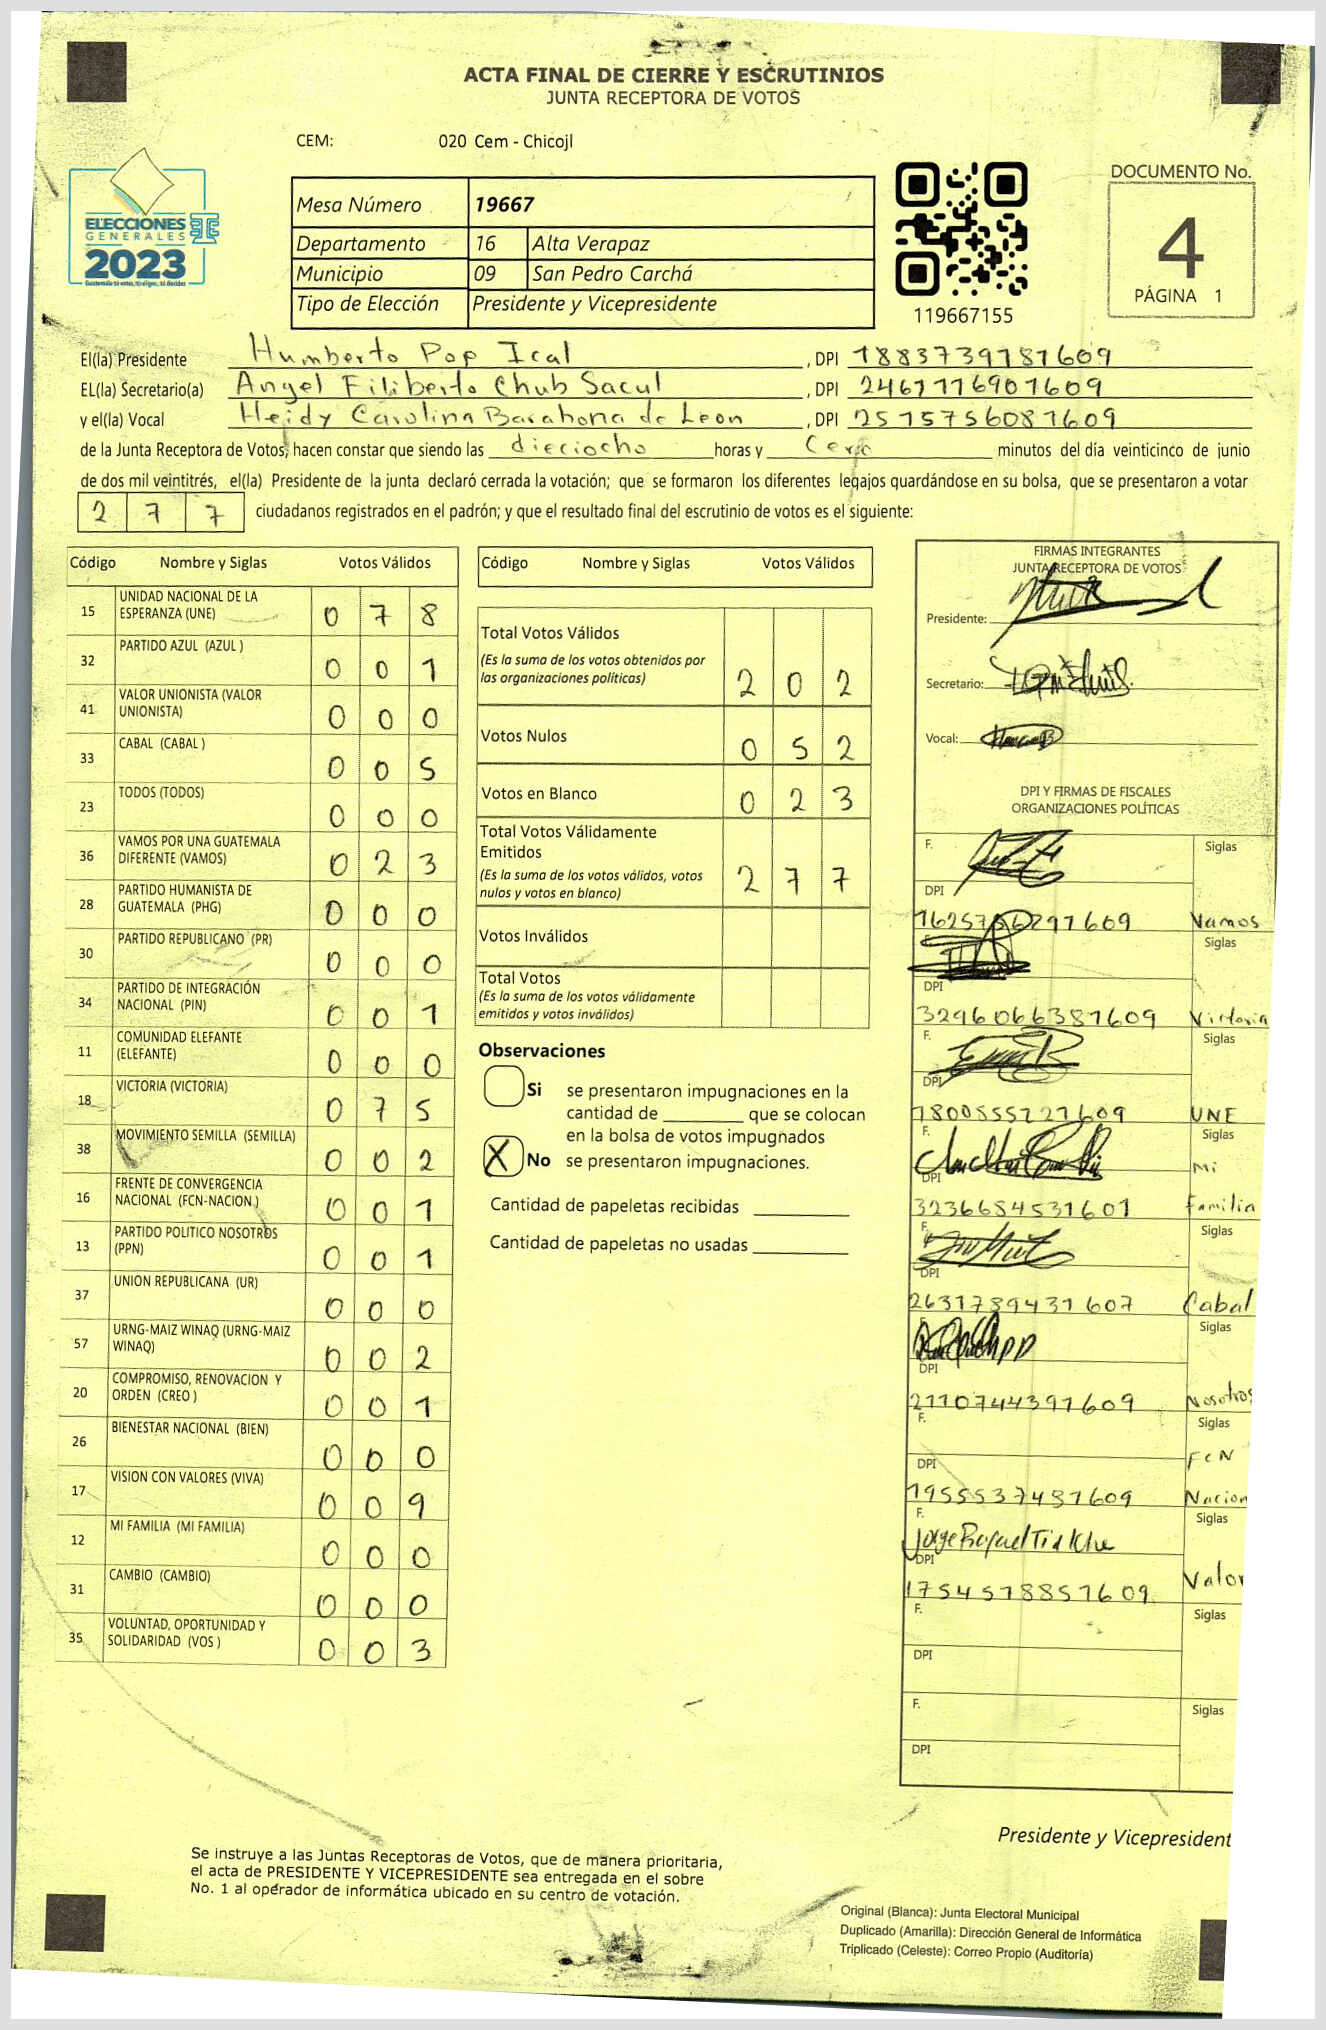 ACTA FINAL DE CIERRE Y ESCRUTINIOS
JUNTA RECEPTORA DE VOTOS
CEM: 020 Cem - Chicojl
ELECCIONES
GENERALES
2023
Guatemala tú votas, tú eliges, tú decides
Mesa Número 19667
Departamento 16 Alta Verapaz
Municipio 09 San Pedro Carchá
Tipo de Elección Presidente y Vicepresidente
119667155
DOCUMENTO No.
4
PÁGINA 1
El(la) Presidente Humberto Pop Ical, DPI 1883739781609
EL(la) Secretario(a) Angel Filiberto Chub Sacul, DPI 2461776901609
y el(la) Vocal Heidy Carolina Barahona de Leon, DPI 2515756081609
de la Junta Receptora de Votos, hacen constar que siendo las dieciocho horas y Cero minutos del día veinticinco de junio
de dos mil veintitrés, el(la) Presidente de la junta declaró cerrada la votación; que se formaron los diferentes legajos guardándose en su bolsa, que se presentaron a votar
2 7 7 ciudadanos registrados en el padrón; y que el resultado final del escrutinio de votos es el siguiente:
Código Nombre y Siglas Votos Válidos
15 UNIDAD NACIONAL DE LA ESPERANZA (UNE) 0 7 8
32 PARTIDO AZUL (AZUL ) 0 0 1
41 VALOR UNIONISTA (VALOR UNIONISTA) 0 0 0
33 CABAL (CABAL ) 0 0 5
23 TODOS (TODOS) 0 0 0
36 VAMOS POR UNA GUATEMALA DIFERENTE (VAMOS) 0 2 3
28 PARTIDO HUMANISTA DE GUATEMALA (PHG) 0 0 0
30 PARTIDO REPUBLICANO (PR) 0 0 0
34 PARTIDO DE INTEGRACIÓN NACIONAL (PIN) 0 0 1
11 COMUNIDAD ELEFANTE (ELEFANTE) 0 0 0
18 VICTORIA (VICTORIA) 0 7 5
38 MOVIMIENTO SEMILLA (SEMILLA) 0 0 2
16 FRENTE DE CONVERGENCIA NACIONAL (FCN-NACION ) 0 0 1
13 PARTIDO POLITICO NOSOTROS (PPN) 0 0 1
37 UNION REPUBLICANA (UR) 0 0 0
57 URNG-MAIZ WINAQ (URNG-MAIZ WINAQ) 0 0 2
20 COMPROMISO, RENOVACION Y ORDEN (CREO ) 0 0 1
26 BIENESTAR NACIONAL (BIEN) 0 0 0
17 VISION CON VALORES (VIVA) 0 0 9
12 MI FAMILIA (MI FAMILIA) 0 0 0
31 CAMBIO (CAMBIO) 0 0 0
35 VOLUNTAD, OPORTUNIDAD Y SOLIDARIDAD (VOS ) 0 0 3
Código Nombre y Siglas Votos Válidos
Total Votos Válidos
(Es la suma de los votos obtenidos por
las organizaciones políticas) 2 0 2
Votos Nulos 0 5 2
Votos en Blanco 0 2 3
Total Votos Válidamente
Emitidos
(Es la suma de los votos válidos, votos
nulos y votos en blanco) 2 7 7
Votos Inválidos
Total Votos
(Es la suma de los votos válidamente
emitidos y votos inválidos)
Observaciones
Si se presentaron impugnaciones en la
cantidad de ________ que se colocan
en la bolsa de votos impugnados
X No se presentaron impugnaciones.
Cantidad de papeletas recibidas
Cantidad de papeletas no usadas
FIRMAS INTEGRANTES
JUNTA RECEPTORA DE VOTOS
Presidente:
Secretario:
Vocal:
DPI Y FIRMAS DE FISCALES
ORGANIZACIONES POLÍTICAS
F. Siglas
DPI
Vamos
F. Siglas
DPI
3296066381609 Victoria
F. Siglas
DPI
1800555721609 UNE
F. Siglas
DPI Mi
3236684531601 Familia
F. Siglas
DPI
2631789431607 Cabal
Siglas
DPI
2110744391609 Nosotros
F. Siglas
DPI FCN
1955537481609 Nacion
F. Siglas
Jorge Rafael
DPI
1754578851609 Valor
F. Siglas
DPI
F. Siglas
DPI
Presidente y Vicepresident
Se instruye a las Juntas Receptoras de Votos, que de manera prioritaria,
el acta de PRESIDENTE Y VICEPRESIDENTE sea entregada en el sobre
No. 1 al operador de informática ubicado en su centro de votación.
Original (Blanca): Junta Electoral Municipal
Duplicado (Amarilla): Dirección General de Informática
Triplicado (Celeste): Correo Propio (Auditoría)